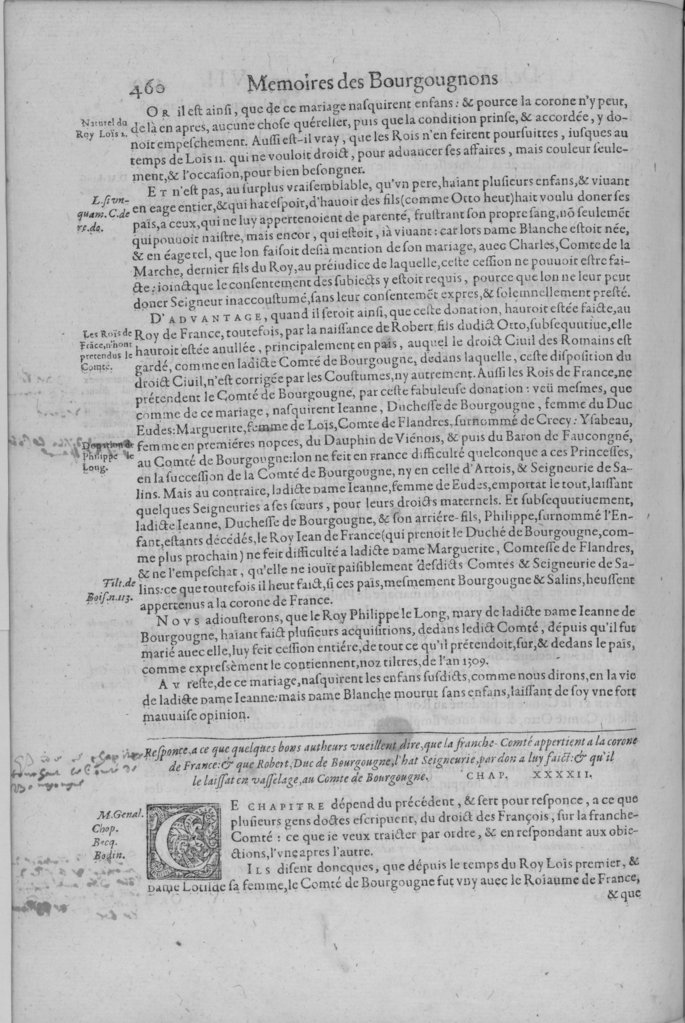 460 Memoires des Bourgougnons
OR il est ainsi, que de ce mariage nasquirent enfans: & pource la corone n'y peut,
Naturel du
Roy Loïs 1.
delà en apres, aucune chose quéreller, puis que la condition prinse, & accordée, y do-
noit empeschement. Aussi est-il vray, que les Rois n'en feirent poursuittes, iusques au
temps de Loïs 11. qui ne vouloit droict, pour aduancer ses affaires, mais couleur seule-
ment, & l'occasion, pour bien besongner.
ET n'est pas, au surplus vraisemblable, qu'vn pere, haiant plusieurs enfans, & viuant
L. si vn-
quam. C. de
rs. do.
en eage entier, & qui hat espoir, d'hauoir des fils (comme Otto heut) hait voulu doner ses
païs, a ceux, qui ne luy appertenoient de parenté, frustrant son propre sang, nō seulemēt
qui pouuoit naistre, mais encor, qui estoit, ià viuant: car lors Dame Blanche estoit née,
& en éage rel, que lon faisoit desià mention de son mariage, auec Charles, Comte de la
Marche, dernier fils du Roy, au préiudice de laquelle, ceste cession ne pouuoit estre fai-
cte: ioinct que le consentement des subiects y estoit requis, pource que lon ne leur peut
doner Seigneur inaccoustumé, sans leur consentemēt expres, & solemnellement presté.
D'ADVANTAGE, quand il seroit ainsi, que ceste donation, hauroit estée faicte, au
Les Rois de
Frāce, n'hont
pretendus le
Comté.
Roy de France, toutefois, par la naissance de Robert fils dudict Otto, subsequutiue, elle
hauroit estée anullée, principalement en païs, auquel le droict Ciuil des Romains est
gardé, comme en ladicte Comté de Bourgougne, dedans laquelle, ceste disposition du
droict Ciuil, n'est corrigée par les Coustumes, ny autrement. Aussi les Rois de France, ne
prétendent le Comté de Bourgougne, par ceste fabuleuse donation: veü mesmes, que
comme de ce mariage, nasquirent Ieanne, Duchesse de Bourgougne, femme du Duc
Eudes: Marguerite, femme de Loïs, Comte de Flandres, surnommé de Crecy: Ysabeau,
Donation de
Philippe le
Long.
femme en premiéres nopces, du Dauphin de Viénois, & puis du Baron de Faucongné,
au Comté de Bourgougne: lon ne feit en France difficulté quelconque a ces Princesses,
en la succession de la Comté de Bourgougne, ny en celle d'Artois, & Seigneurie de Sa-
lins. Mais au contraire, ladicte Dame Ieanne, femme de Eudes, emportat le tout, laissant
quelques Seigneuries a ses sœurs, pour leurs droicts maternels. Et subsequutiuement,
ladicte Ieanne, Duchesse de Bourgougne, & son arriére-fils, Philippe, surnommé l'En-
fant, estants décédés, le Roy Iean de France (qui prenoit le Duché de Bourgougne, com-
me plus prochain) ne feit difficulté a ladicte Dame Marguerite, Comtesse de Flandres,
& ne l'empeschat, qu'elle ne iouït paisiblement desdicts Comtés & Seigneurie de Sa-
Tilt. de
Bois. n. 113.
lins: ce que toutefois il heut faict, si ces païs, mesmement Bourgougne & Salins, heussent
appertenus a la corone de France.
NOVS adiousterons, que le Roy Philippe le Long, mary de ladicte Dame Ieanne de
Bourgougne, haiant faict plusieurs acquisitions, dedans ledict Comté, dépuis qu'il fut
marié auec elle, luy feit cession entiére, de tout ce qu'il prétendoit, sur, & dedans le païs,
comme expressèment le contiennent, noz tiltres, de l'an 1309.
AV reste, de ce mariage, nasquirent les enfans susdicts, comme nous dirons, en la vie
de ladicte Dame Ieanne: mais Dame Blanche mourut sans enfans, laissant de soy vne fort
mauuaise opinion.
Responce, a ce que quelques bons autheurs vueillent dire, que la franche-Comté appertient a la corone
de France: & que Robert, Duc de Bourgougne, l'hat Seigneurie, par don a luy faict: & qu'il
le laissat en vasselage, au Comte de Bourgougne. CHAP. XXXXII.
M. Genal.
Chop.
Becq.
Bodin.
CE CHAPITRE dépend du précédent, & sert pour responce, a ce que
plusieurs gens doctes escripuent, du droict des François, sur la franche-
Comté: ce que ie veux traicter par ordre, & en respondant aux obie-
ctions, l'vne apres l'autre.
ILS disent doncques, que dépuis le temps du Roy Loïs premier, &
Dame Lotilde sa femme, le Comté de Bourgougne fut vny auec le Roïaume de France,
& que